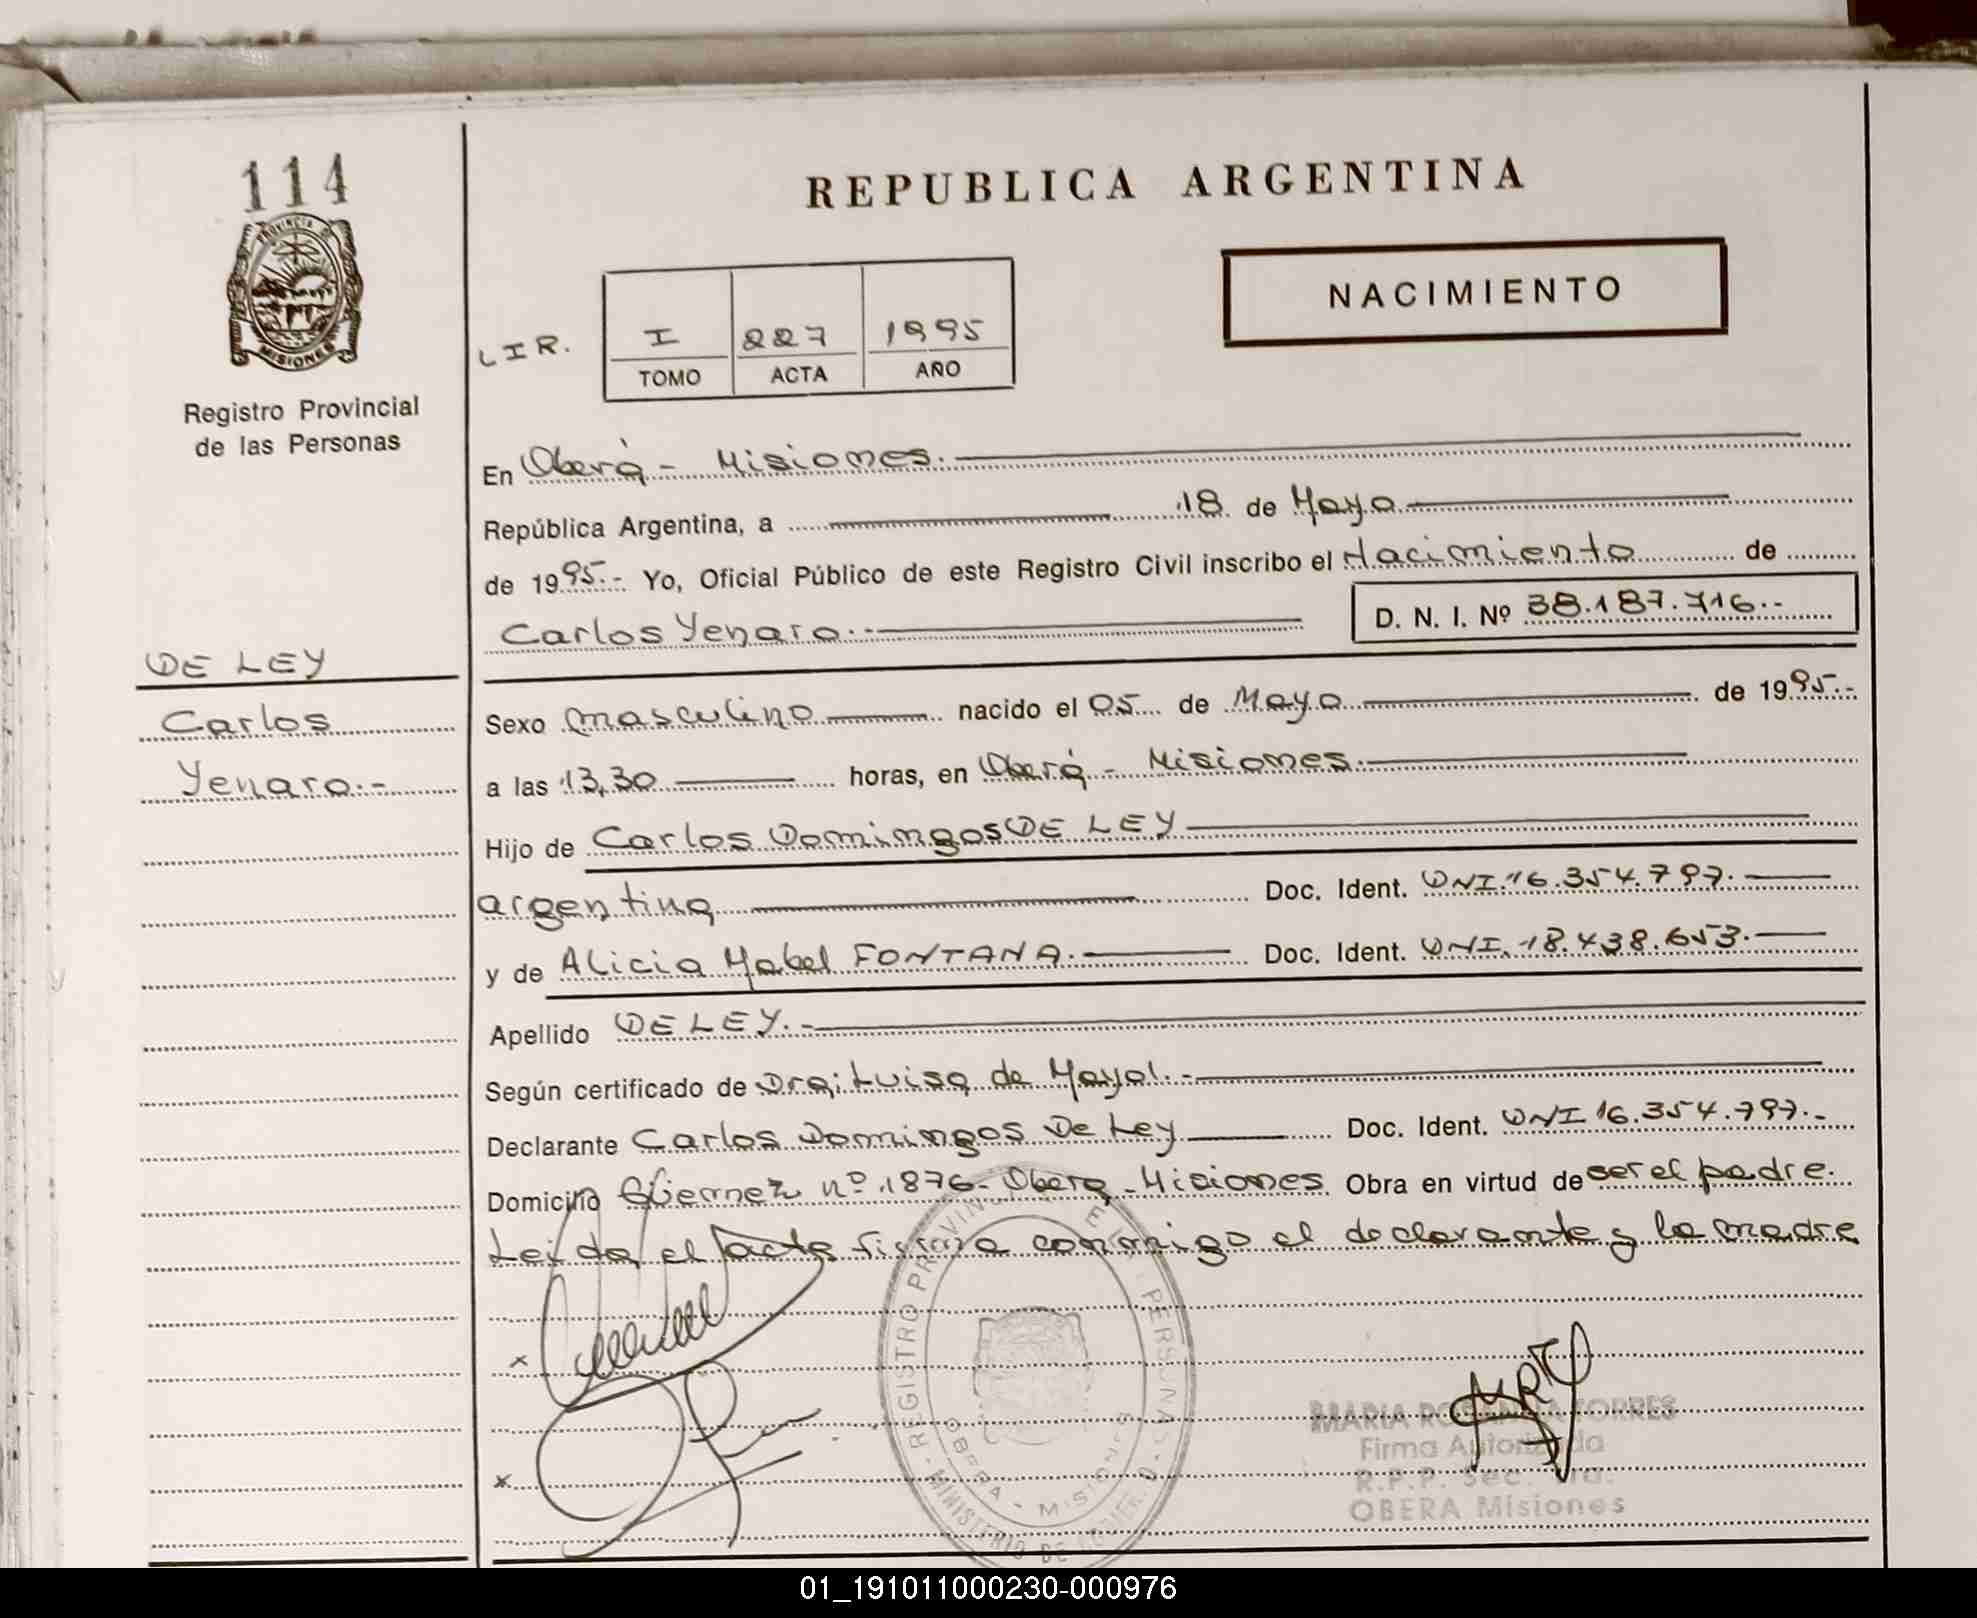 114
REPUBLICA ARGENTINA
PROVINCIA DE
MISIONES
NACIMIENTO
LIR.
I 227 1995
TOMO ACTA AÑO
Registro Provincial
de las Personas
En Oberá - Misiones.
República Argentina, a 18 de Mayo
de 1995.- Yo, Oficial Público de este Registro Civil inscribo el Nacimiento de
Carlos Yenaro.- D. N. I. Nº 38.187.716.-
DE LEY
Carlos
Yenaro.-
Sexo masculino nacido el 05 de Mayo de 1995.-
a las 13,30 horas, en Oberá - Misiones.
Hijo de Carlos Domingos DE LEY
argentina Doc. Ident. DNI.16.354.797.
y de Alicia Mabel FONTANA. Doc. Ident. DNI.18.438.653.
Apellido DE LEY.-
Según certificado de Dra: Luisa de Mayol.-
Declarante Carlos Domingos De Ley Doc. Ident. DNI 16.354.797.-
Domicilio nº 1876- Obera - Misiones Obra en virtud de ser el padre.
Leida el acta firma conmigo el declarante y la madre
REGISTRO PROVINCIAL DE LAS PERSONAS
OBERA - MISIONES
MINISTERIO DE GOBIERNO
MARIA TORRES
Firma Autorizada
R.P.P. Sec.
OBERA Misiones
01_191011000230-000976